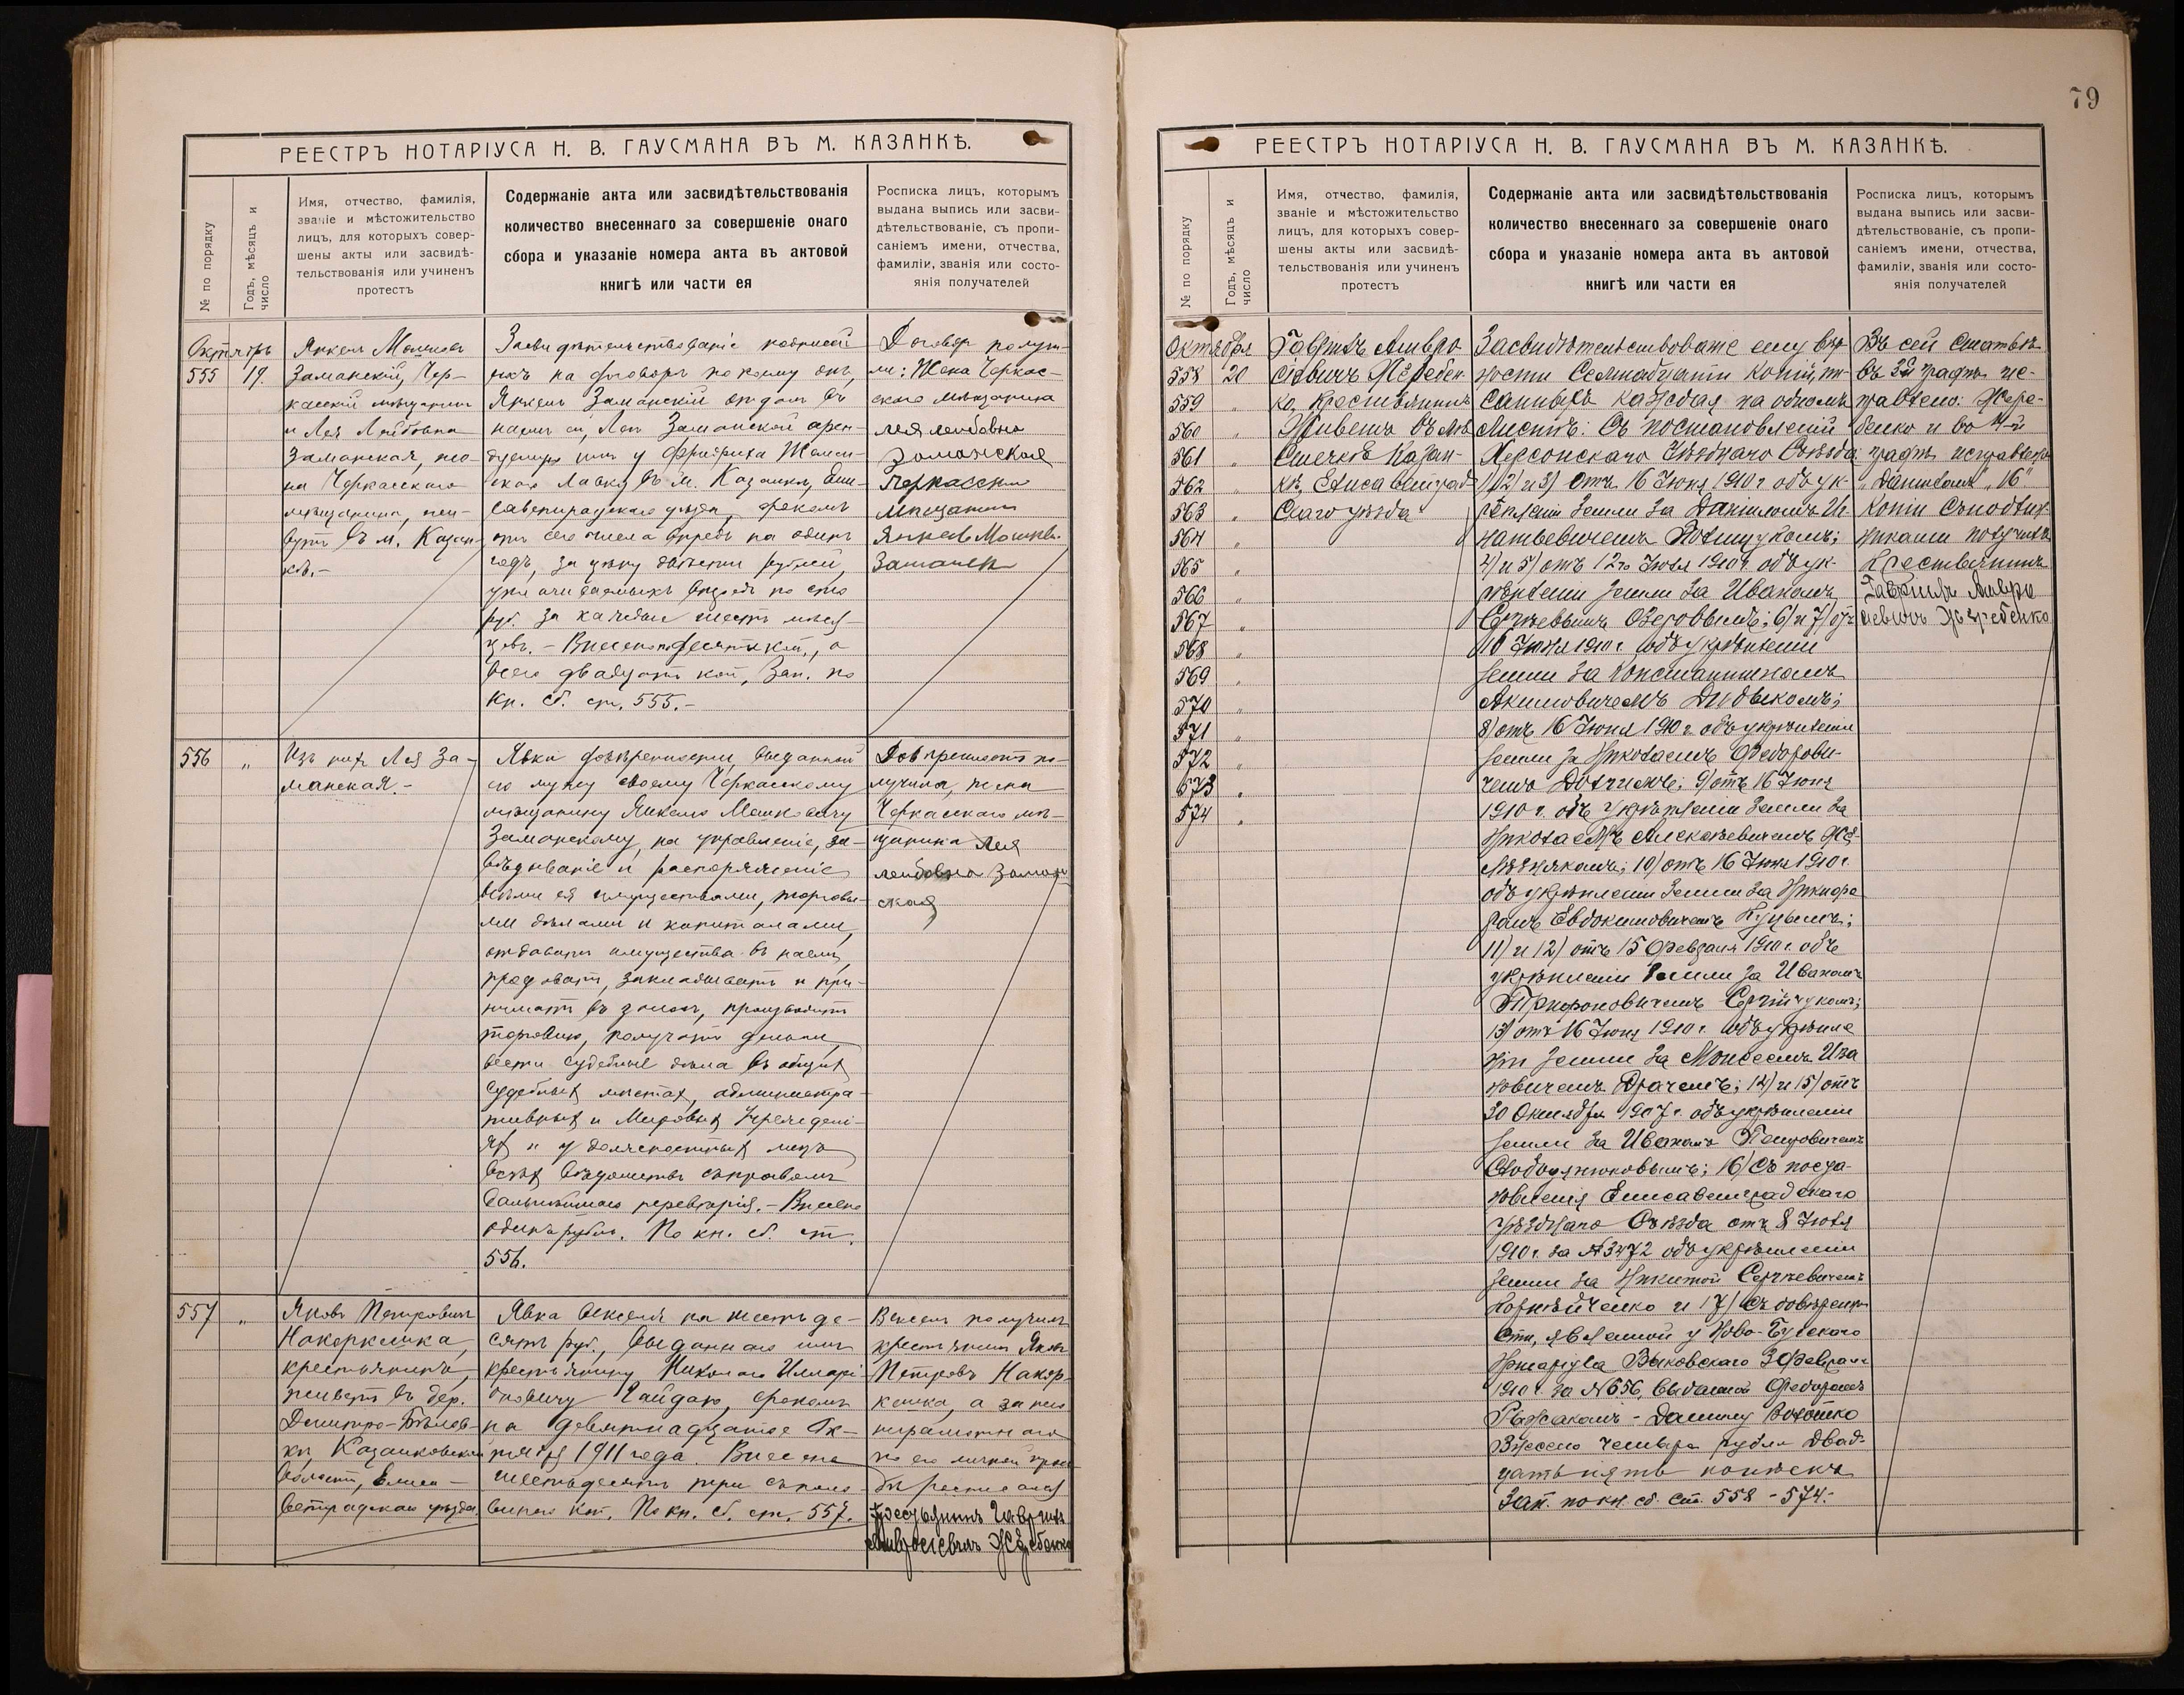 79
РЕЕСТРЪ НОТАРІУСА Н. В. ГАУСМАНА ВЪ М. КАЗАНКѢ.
№ по порядку
Годъ, мѣсяцъ и число
Имя, отчество, фамилія,
званіе и мѣстожительство
лицъ, для которыхъ совер-
шены акты или засвидѣ-
тельствованія или учиненъ
протестъ
Содержаніе акта или засвидѣтельствованія
количество внесеннаго за совершеніе онаго
сбора и указаніе номера акта въ актовой
книгѣ или части ея
Росписка лицъ, которымъ
выдана выпись или засви-
дѣтельствованіе, съ пропи-
саніемъ имени, отчества,
фамиліи, званія или состо-
янія получателей
Октябрь
555 19.
Янкель Мошковъ
Заманскій, Чер-
касскій мѣщанинъ
и Лея Лейбовна
Заманская, же-
на Черкасскаго
мѣщанина, жи-
вутъ въ м. Казан-
кѣ.-
Засвидѣтельствованіе подписей
ихъ на договорѣ по коему онъ,
Янкель Заманскій отдалъ въ
наемъ ей, Леѣ Заманской арен-
дуемую имъ у Фридриха
лавку въ м. Казанкѣ, Ели-
саветградскаго уѣзда, срокомъ
отъ сего числа впредь на одинъ
годъ, за цѣну двѣсти рублей,
уплачиваемыхъ впередъ по сто
руб. за каждые шесть мѣся-
цевъ. - Внесено по десяти коп., а
всего двадцать коп. Зап. по
кн. сб. ст. 555.-
Договоръ получи-
ли: Жена Черкас-
скаго мѣщанина
Лея Лейбовна
Заманская
Черкасскій
мѣщанинъ
Янкель Мошков
Заманск
556 "
Изъ нихъ Лея За-
манская.-
Явка довѣренности, выданной
ею мужу своему Черкасскому
мѣщанину Янкелю Мошковичу
Заманскому, на управленіе, за-
вѣдываніе и распоряженіе
всѣми ея имуществами, торговы-
ми дѣлами и капиталами,
отдавать имущества въ наемъ,
продавать, закладывать и при-
нимать въ залогъ, производить
торговлю, получать деньги,
вести судебныя дѣла въ общихъ
судебныхъ мѣстахъ, администра-
тивныхъ и Мировыхъ Учрежденi-
яхъ и у должностныхъ лицъ
всѣхъ вѣдомствъ съ правомъ
дальнѣйшаго передовѣрія.- Внесенъ
одинъ рубль. По кн. сб. ст.
556.
Довѣренность по-
лучила, жена
Черкасскаго мѣ-
щанина Лея
Лейбовна Заман
ская
557 "
Яковъ Петровичъ
крестьянинъ,
живетъ въ дер.
Казанковской
волости, Елиса-
ветградскаго уѣзда.
Явка векселя на шестьде-
сятъ руб., выданнаго имъ
крестьянину Николаю Иларі-
оновичу Гайдаю, срокомъ
на девятнадцатое Ок-
тября 1911 года. Внесено
шестьдесятъ три съ поло-
виною коп. По кн. сб. ст. 557.
Вексель получилъ
крестьянинъ Яковъ
Петровъ
а за него
неграмотнаго
по его личной прось-
бѣ росписался
Крестьянинъ Гаврилъ
Амвросіевичъ Жеребенко
РЕЕСТРЪ НОТАРІУСА Н. В. ГАУСМАНА ВЪ М. КАЗАНКѢ.
№ по порядку
Годъ, мѣсяцъ и число
Имя, отчество, фамилія,
званіе и мѣстожительство
лицъ, для которыхъ совер-
шены акты или засвидѣ-
тельствованія или учиненъ
протестъ
Содержаніе акта или засвидѣтельствованія
количество внесеннаго за совершеніе онаго
сбора и указаніе номера акта въ актовой
книгѣ или части ея
Росписка лицъ, которымъ
выдана выпись или засви-
дѣтельствованіе, съ пропи-
саніемъ имени, отчества,
фамиліи, званія или состо-
янія получателей
Октября
558 20
559 "
560 "
561 "
562 "
563 "
564 "
565 "
566 "
567 "
568 "
569 "
570 "
571 "
572 "
573 "
574 "
Гаврилъ Амвро
сіевичъ Жеребен
ко, крестьянинъ
Живетъ въ мѣ
стечкѣ Казан-
кѣ, Елисаветград
скаго уѣзда
Засвидѣтельствованіе ему вѣр
ности семнадцати копій, пи-
санныхъ каждая на одномъ
листѣ: Съ постановленій
Херсонскаго Уѣзднаго Съѣзда
1) 2) и 3) отъ 16 Іюня 1910 г. объ ук-
рѣпленіи земли за Даніиломъ Иг-
натьевичемъ
4) и 5) отъ 12го Іюля 1910 г. объ ук-
рѣпленіи земли за Иваномъ
Сергѣевымъ Озеровымъ; 6) и 7) отъ
16 Іюня 1910 г. объ укрѣпленіи
земли за Константиномъ
Акимовичемъ
8) отъ 16 Іюня 1910 г. объ укрѣпленіи
земли за Николаемъ Федорови-
чемъ 9) отъ 16 Іюня
1910 г. объ укрѣпленіи земли за
Николаемъ Алексѣевичемъ Же-
лѣзнякомъ; 10) отъ 16 Іюня 1910 г.
объ укрѣпленіи земли за Никифо
ромъ Евдокимовичемъ Куцымъ;
11) и 12) отъ 15 Февраля 1910 г. объ
укрѣпленіи земли за Иваномъ
13) отъ 16 Іюня 1910 г. объ укрѣпле
ніи земли за Моисеемъ Ива
новичемъ Драчемъ; 14) и 15) отъ
30 Октября 1907 г. объ укрѣпленіи
земли за Иваномъ Петровичемъ
16) Съ поста-
новленія Елисаветградскаго
Уѣзднаго Съѣзда отъ 8 Іюля
1910 г. за № 3472 объ укрѣпленіи
земли за Никитой Сергѣевичемъ
Корнѣйченко и 17) съ довѣренно
сти, явленной у Ново-Бугскаго
Нотаріуса Выковскаго 3 Февраля
1910 г. за № 656, выданной Федоромъ
Рыжакомъ - Даніилу
Внесено четыре рубля двад-
цать пять копѣекъ
Зап. по кн. сб. ст. 558 - 574.
Въ сей статьѣ
въ 3й графѣ ис-
правлено: Жере-
бенко и во 4-й
графѣ исправлено
"Даніиломъ" "16"
Копіи съ подлин-
никами получилъ
Крестьянинъ
Гаврилъ Амвро
сіевичъ Жеребенко